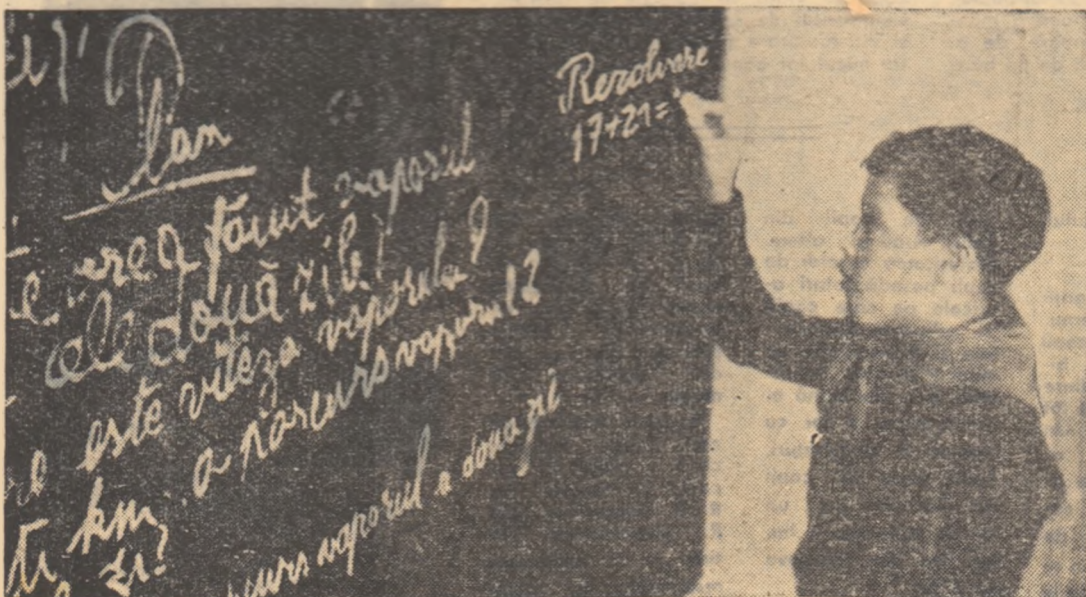 Plan
ore a făcut vaporul
cele două zile?
este viteza vaporului?
km. a parcurs vaporul
zi?
vaporul a doua zi
Rezolvare
17+21=